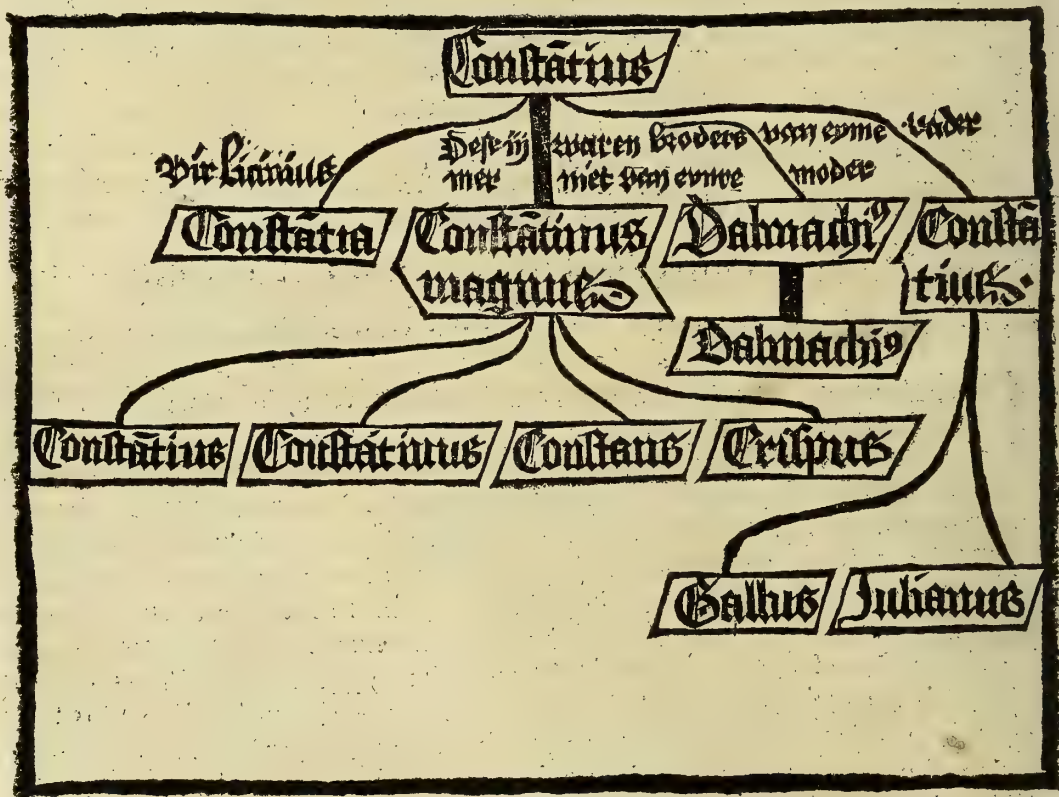 Constātius
Vir Licinius
Dese iij waren broders van eyme vader
mer niet van eynre moder
Constātia
Constātinus
magnus
Dalmachiꝯ
Constā
tius.
Dalmachiꝯ
Constātius
Constātinus
Constans
Crispus
Gallus
Julianus